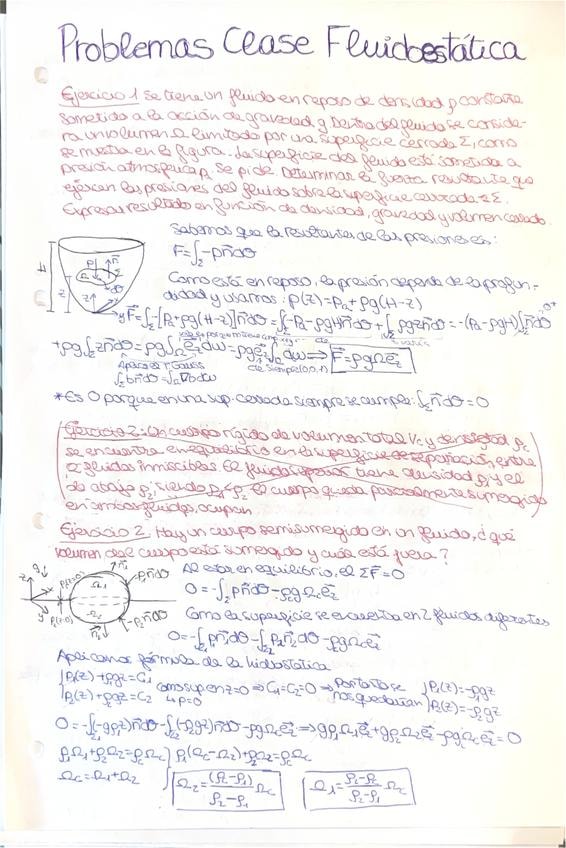 Problemas Clase Fluidoestática
Ejercicio 1 Se tiene un fluido en reposo de densidad ρ constante
sometido a la acción de gravedad g. Dentro del fluido se conside-
ra un volumen Ω limitado por una superficie cerrada Σ, como
se muestra en la figura. La superficie del fluido está sometida a
presión atmosférica Pa. Se pide. Determinar la fuerza resultante que
ejercen las presiones del fluido sobre la superficie cerrada Σ.
Expresar resultado en función de densidad, gravedad y volumen cerrado.
Sabemos que la resultante de las presiones es:
F=∫Σ -pn⃗dσ
Como está en reposo, la presión depende de la profun-
didad y usamos: p(z)=Pa+ρg(H-z)
F⃗=∫Σ -[Pa+ρg(H-z)]n⃗dσ=∫Σ -Pa-ρgHn⃗dσ+∫Σ ρgzn⃗dσ=-(Pa-ρgH)∫Σ n⃗dσ 0*
+ρg∫Σ zn⃗dσ=ρg∫Ω e⃗z dω=ρge⃗z∫Ω dω ⇒ F⃗=ρgΩe⃗z
Aplicas T. Gauss
∫Σ bn⃗dσ=∫Ω ∇bdω
*Es 0 porque en una sup. cerrada siempre se cumple: ∫Σ n⃗dσ=0
Ejercicio 2: Un cuerpo rígido de volumen total Vc y densidad ρc
se encuentra en equilibrio en la superficie de separación, entre
2 fluidos inmiscibles. El fluido superior tiene densidad ρ1 y el
de abajo ρ2, siendo ρ1<ρ2. El cuerpo queda parcialmente sumergido
en ambos fluidos, ocupan
Ejercicio 2 Hay un cuerpo semisumergido en un fluido, ¿qué
volumen del cuerpo está sumergido y cuál está fuera?
Al estar en equilibrio, el ΣF⃗=0
0=-∫Σ pn⃗dσ-ρcgΩce⃗z
Como la superficie se encuentra en 2 fluidos diferentes
0=-∫Σ1 p1n⃗1dσ-∫Σ2 p2n⃗2dσ-ρcgΩce⃗z
Aplicamos fórmula de la hidostática
p1(z)+ρ1gz=C1
p2(z)+ρ2gz=C2
como sup en z=0 ⇒ C1=C2=0 ⇒ Por tanto se
↳p=0
nos quedarían
p1(z)=-ρ1gz
p2(z)=-ρ2gz
0=-∫Σ1(-ρ1gz)n⃗dσ-∫Σ2(-ρ2gz)n⃗dσ-ρcgΩce⃗z ⇒ gρ1Ω1e⃗z+gρ2Ω2e⃗z-ρcgΩce⃗z=0
ρ1Ω1+ρ2Ω2=ρcΩc
Ωc=Ω1+Ω2
ρ1(Ωc-Ω2)+ρ2Ω2=ρcΩc
Ω2=(ρc-ρ1)/(ρ2-ρ1) Ωc
Ω1=(ρ2-ρc)/(ρ2-ρ1) Ωc